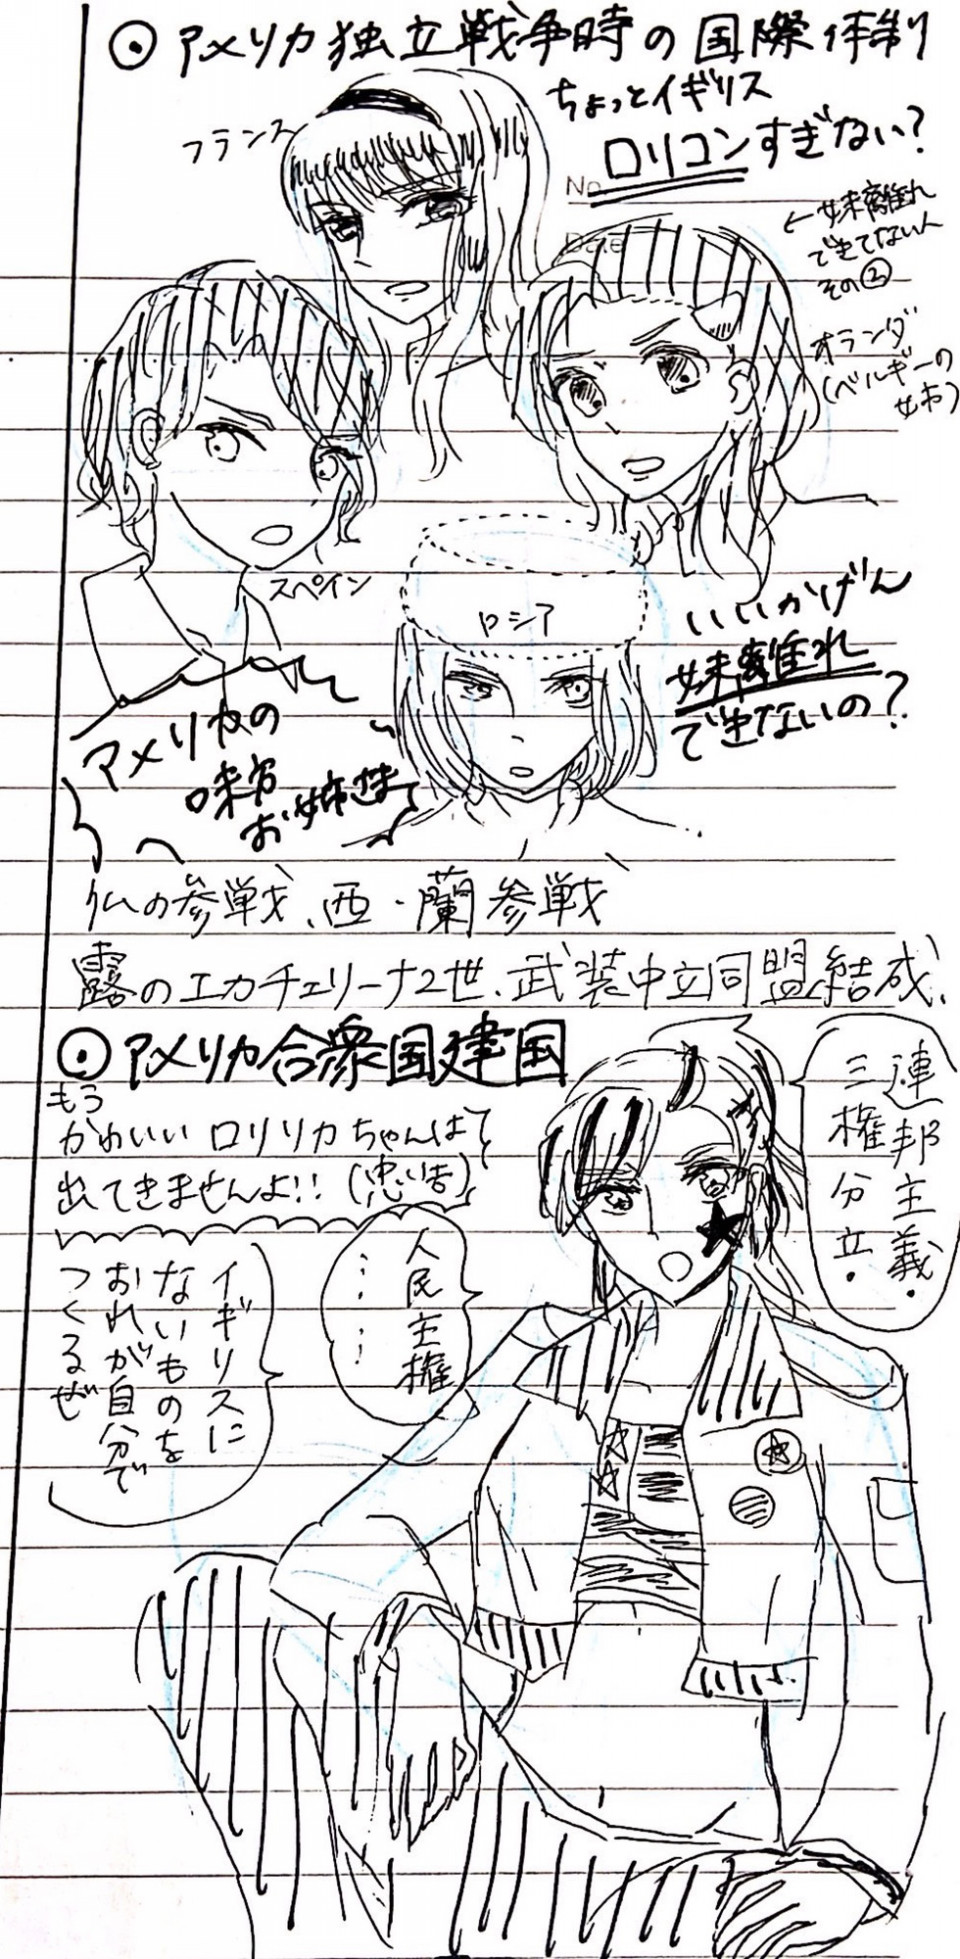 アメリカ独立戦争時の国際体制
フランス
ちょっとイギリス
ロリコンすぎない？
No.
Date
←妹離れ
できてないん
その②
オランダ
(ベルギーの
妹)
スペイン
ロシア
いいかげん
妹離れ
できないの？
アメリカの
味方
お姉さま
仏の参戦、西・蘭参戦
露のエカチェリーナ2世、武装中立同盟結成、
アメリカ合衆国建国
もう
かわいいロリリカちゃんは
出てきませんよ!! (忠告)
連邦主義・
三権分立・
人民主権
……
イギリスに
ないものを
おれが自分で
つくるぜ